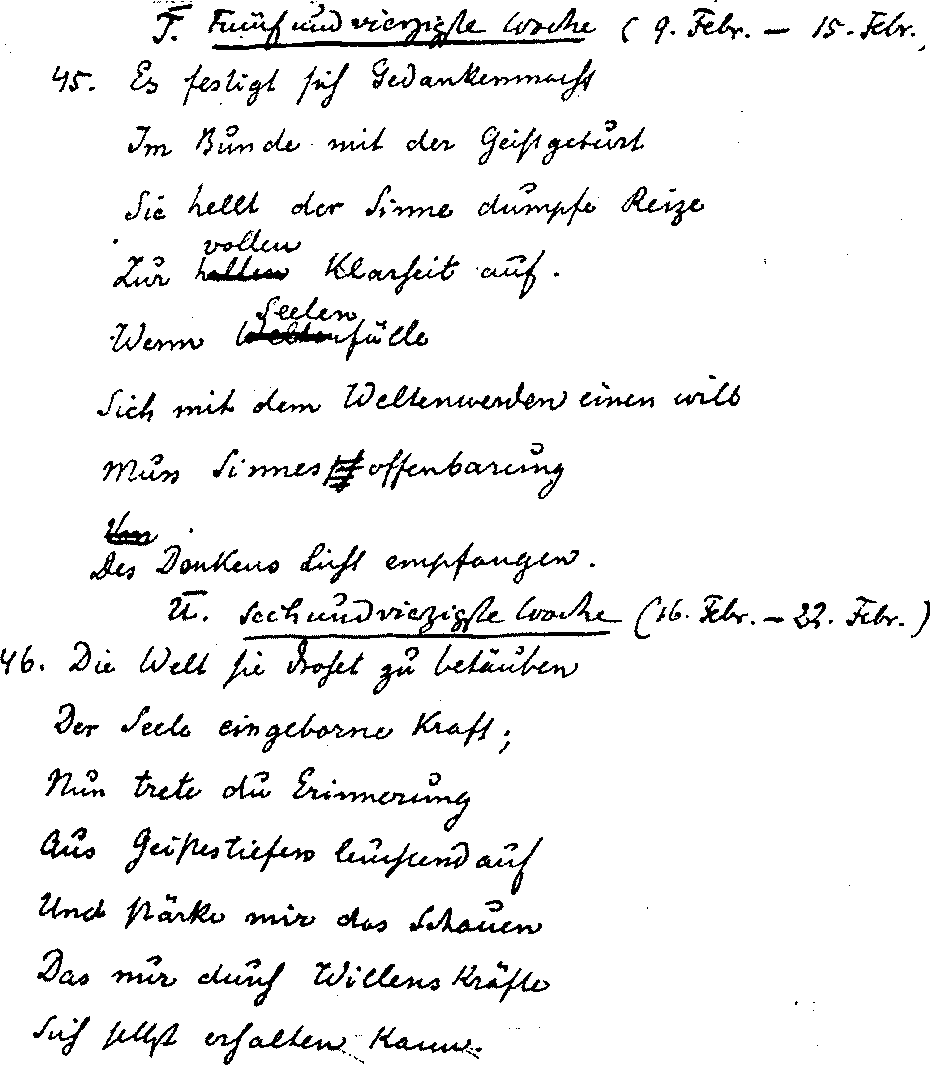 T̅. Fünfundvierzigste Woche (9. Febr. – 15. Febr.,
45. Es festigt sich Gedankenmacht
Im Bunde mit der Geistgeburt
Sie hellt der Sinne dumpfe Reize
vollen
Zur hellen Klarheit auf.
Seelen
Wenn Weltenfülle
Sich mit dem Weltenwerden einen will
Muss Sinnesoffenbarung
Um
Des Denkens Licht empfangen.
U̅. Sechundvierzigste Woche (16. Febr. – 22. Febr.)
46. Die Welt sie drohet zu betäuben
Der Seele eingeborne Kraft;
Nun trete du Erinnerung
Aus Geistestiefen leuchtend auf
Und stärke mir das Schauen
Das nur durch Willenskräfte
Sich selbst erhalten kann.